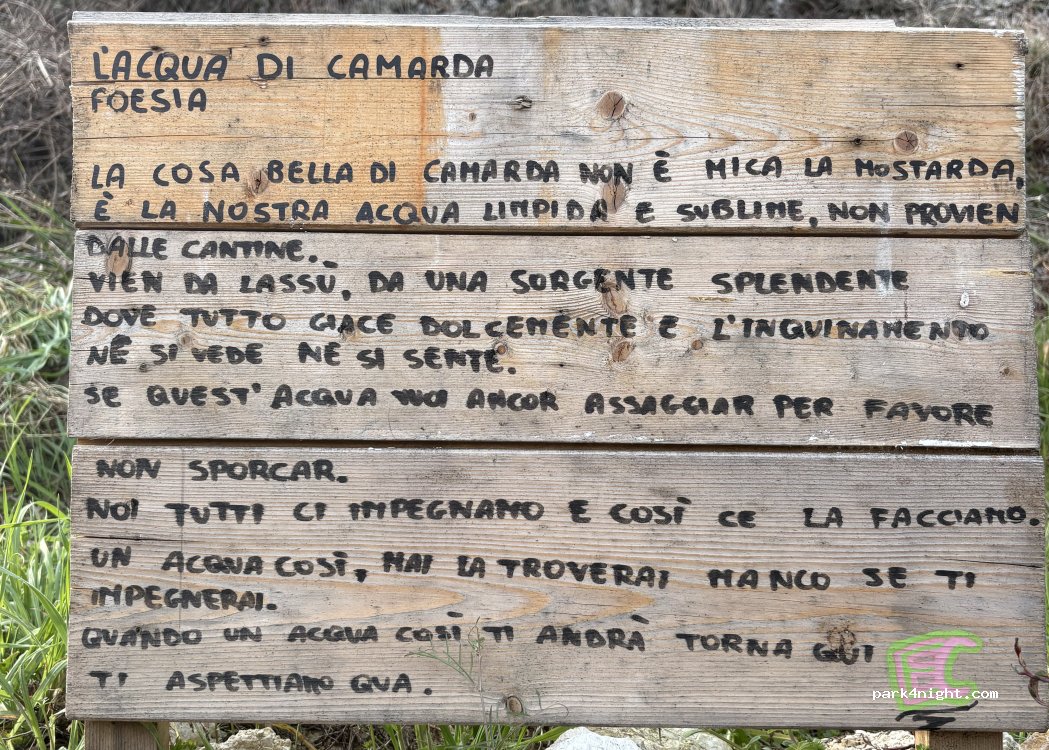 L'ACQUA DI CAMARDA
POESIA
LA COSA BELLA DI CAMARDA NON È MICA LA MOSTARDA,
È LA NOSTRA ACQUA LIMPIDA E SUBLIME, NON PROVIEN
DALLE CANTINE.
VIEN DA LASSÙ, DA UNA SORGENTE SPLENDENTE
DOVE TUTTO GIACE DOLCEMENTE E L'INQUINAMENTO
NÉ SI VEDE NÉ SI SENTE.
SE QUEST'ACQUA VUOI ANCOR ASSAGGIAR PER FAVORE
NON SPORCAR.
NOI TUTTI CI IMPEGNAMO E COSÌ CE LA FACCIAMO.
UN ACQUA COSÌ, MAI LA TROVERAI MANCO SE TI
IMPEGNERAI.
QUANDO UN ACQUA COSÌ TI ANDRÀ TORNA QUI
TI ASPETTIAMO QUA.
park4night.com